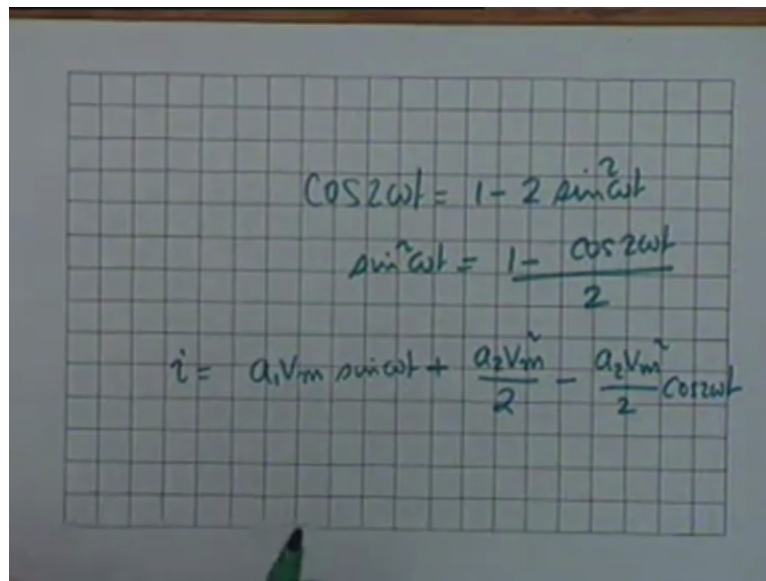 cos2ωt = 1 - 2 sin²ωt
sin²ωt = (1 - cos2ωt)/2
i = a₁Vm sinωt + a₂Vm²/2 - a₂Vm²/2 cos2ωt